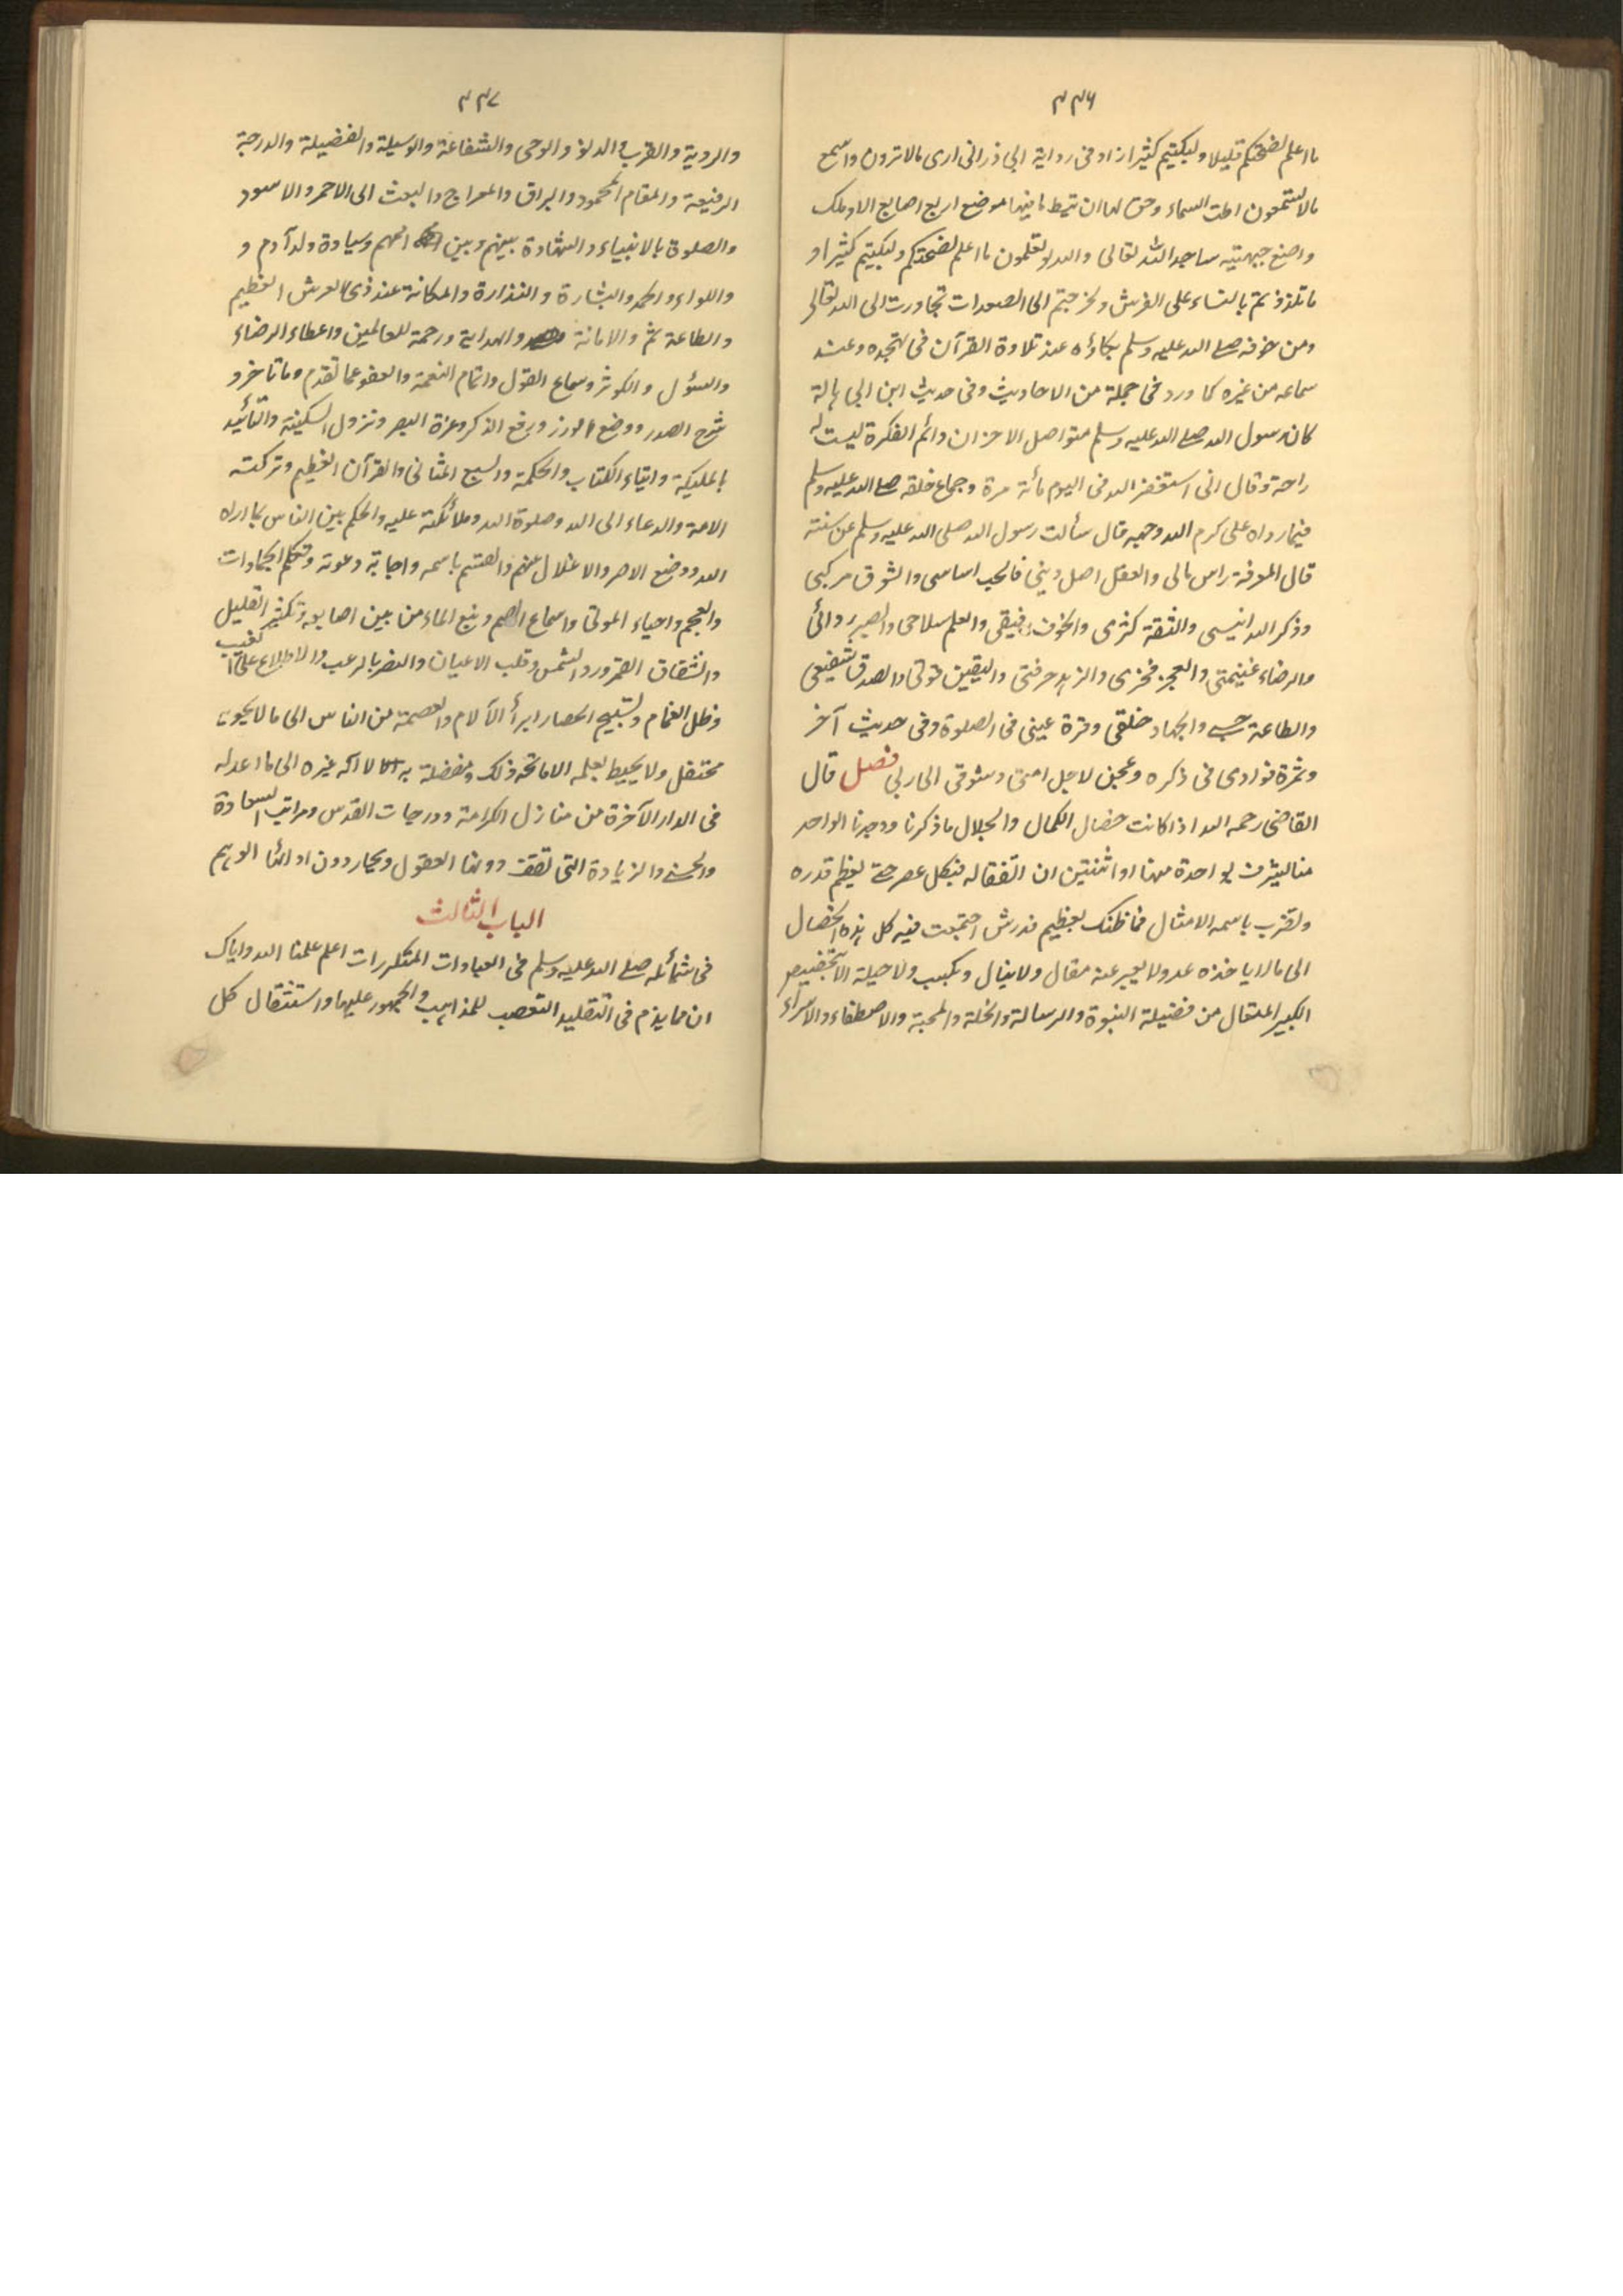 ٣٣٦
ما اعلم لضحكتم قليلا ولبكيتم كثيرا زاد فى رواية ابى ذر انى ارى مالا ترون واسمع
مالا تسمعون اطت السماء وحق لها ان تئط ما فيها موضع اربع اصابع الا وملك
واضع جبهته ساجدا لله تعالى والله لو تعلمون ما اعلم لضحكتم ولبكيتم كثيرا و
ما تلذذتم بالنساء على الفرش ولخرجتم الى الصعدات تجاورت الى الله تعالى
ومن خوفه صلے الله عليه وسلم بكاؤه عند تلاوة القرآن فى تهجده وعند
سماعه من غيره كما ورد فى جملة من الاحاديث وفى حديث ابن ابى هالة
كان رسول الله صلے الله عليه وسلم متواصل الاحزان دائم الفكرة ليست له
راحة وقال انى استغفر الله فى اليوم مائة مرة وجماع خلقه صلے الله عليه وسلم
فيما رواه على كرم الله وجهه قال سألت رسول الله صلى الله عليه وسلم عن سنته
قال المعرفة راس مالى والعقل اصل دينى فالحب اساسى والشوق مركبى
وذكر الله انيسى والثقة كنزى والخوف رفيقى والعلم سلاحى والصبر ردائى
والرضاء غنيمتى والعجز فخرى والزهد حرفتى واليقين قوتى والصدق شفيعى
والطاعة حسبے والجهاد خلقى وقرة عينى فى الصلوة وفى حديث آخر
وثمرة فؤادى فى ذكره وعجبن لاجل امتى وشوقى الى ربى فصل قال
القاضى رحمه الله اذا كانت خصال الكمال والجلال ما ذكرنا ووجدنا الواحد
منا يشرف بواحدة منها او اثنتين ان اتفقا له فى كل عصر حتے يعظم قدره
ولضرب باسمه الامثال فما ظنك بعظيم قدر من اجتمعت فيه كل هذه الخصال
الى ما لا ياخذه عد ولا يعبر عنه مقال ولا ينال وبكسب ولا حيلة الا بتخصيص
الكبير المتعال من فضيلة النبوة والرسالة والخلة والمحبة والاصطفاء والاسراء
٣٣٧
والروية والقرب والدنو والوحى والشفاعة والوسيلة والفضيلة والدرجة
الرفيعة والمقام المحمود والبراق والمعراج والبعث الى الاحمر والاسود
والصلوة بالانبياء والشهادة بينهم وبين امهم وسيادة ولد آدم و
واللواء والحمد والبشارة والنذارة والمكانة عند ذى العرش العظيم
والطاعة ثم والامانة والهداية ورحمة للعالمين واعطاء الرضاء
والسؤل والكوثر وسماع القول واتمام النعمة والعفو عما تقدم وما تاخر و
شرح الصدر ووضع الوزر ورفع الذكر وعزة النصر ونزول السكينة والتأييد
بالمليكة وايتاء الكتاب والحكمة والسبع المثانى والقرآن العظيم وتزكيته
الامة والدعاء الى الله وصلوة الله وملائكته عليه والحكم بين الناس بما اراه
الله ووضع الاصر والاغلال عنهم والقسم باسمه واجابة دعوته وتكلم الجمادات
والعجم واحياء الموتى واسماع الصم ونبع الماء من بين اصابعه وتكثير القليل
وانشقاق القمر ورد الشمس وقلب الاعيان والنصر بالرعب والاطلاع على الغيب
وظل الغمام وتسبيح الحصا وابرأ الآلام والعصمة من الناس الى ما لا يحويه
محتفل ولا يحيط بعلمه الا مانحه ذلك ومفضله به لا اله غيره الى ما اعد له
فى الدار الآخرة من منازل الكرامة ودرجات القدس ومراتب السعادة
والحسنى والزيادة التى تقف دونها العقول ويحار دون ادانها الوهم
الباب الثالث
فى شمائله صلے الله عليه وسلم فى العبادات المتكررات اعلم علمنا الله واياك
ان مما يذم فى التقليد التعصب للمذاهب والجمهور عليها واستثقال كل